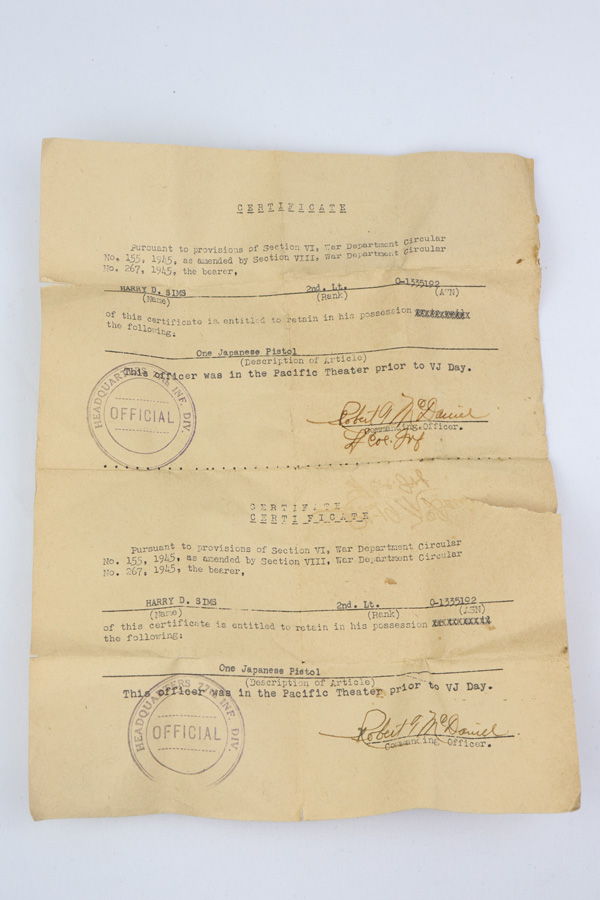 CERTIFICATE
Pursuant to provisions of Section VI, War Department Circular
No. 155, 1945, as amended by Section VIII, War Department Circular
No. 267, 1945, the bearer,
HARRY D. SIMS 2nd. Lt. O-1335102
(Name) (Rank) (ASN)
of this certificate is entitled to retain in his possession
the following:
One Japanese Pistol
(Description of Article)
This officer was in the Pacific Theater prior to VJ Day.
HEADQUARTERS 77 INF. DIV.
OFFICIAL
Robert G McDaniel
Commanding Officer.
Lt Col. Inf
CERTIFATE
CERTIFICATE
Pursuant to provisions of Section VI, War Department Circular
No. 155, 1945, as amended by Section VIII, War Department Circular
No. 267, 1945, the bearer,
HARRY D. SIMS 2nd. Lt. O-1335102
(Name) (Rank) (ASN)
of this certificate is entitled to retain in his possession
the following:
One Japanese Pistol
(Description of Article)
This officer was in the Pacific Theater prior to VJ Day.
HEADQUARTERS 77 INF. DIV.
OFFICIAL
Robert G McDaniel
Commanding Officer.